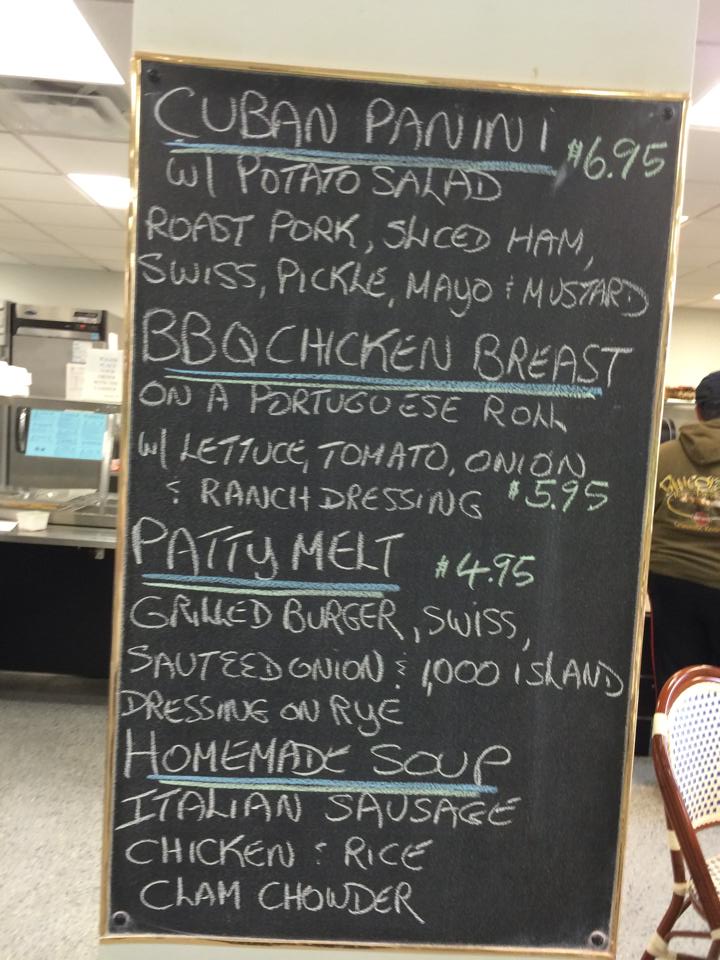 CUBAN PANINI $6.95
W/ POTATO SALAD
ROAST PORK, SLICED HAM,
SWISS, PICKLE, MAYO & MUSTARD
BBQ CHICKEN BREAST
ON A PORTUGUESE ROLL
W/ LETTUCE, TOMATO, ONION
& RANCH DRESSING $5.95
PATTY MELT $4.95
GRILLED BURGER, SWISS,
SAUTEED ONION & 1,000 ISLAND
DRESSING ON RYE
HOMEMADE SOUP
ITALIAN SAUSAGE
CHICKEN & RICE
CLAM CHOWDER